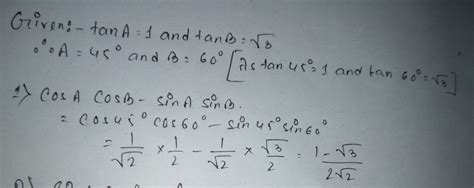 Given:- tanA = 1 and tanB = √3
∴ A = 45° and B = 60° [As tan 45° = 1 and tan 60° = √3]
1) CosA CosB - SinA SinB.
= Cos45° Cos60° - Sin45° Sin60°
= 1/√2 × 1/2 - 1/√2 × √3/2 = 1-√3/2√2